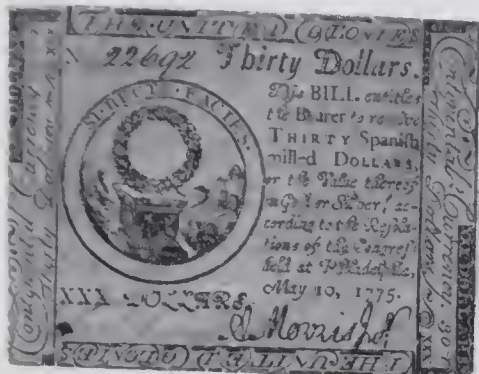 THE UNITED COLONIES
22692 Thirty Dollars.
SI RECTE FACIES.
This BILL entitles
the Bearer to receive
THIRTY Spanish
mill-d DOLLARS,
or the Value thereof
in Gold or Silver, ac-
cording to the Resolu-
tions of the Congress
held at Philadelphia,
May 10, 1775.
XXX DOLLARS.
Morris
THE UNITED COLONIES
Continental Currency
Thirty Dollars
Continental Currency
Thirty Dollars